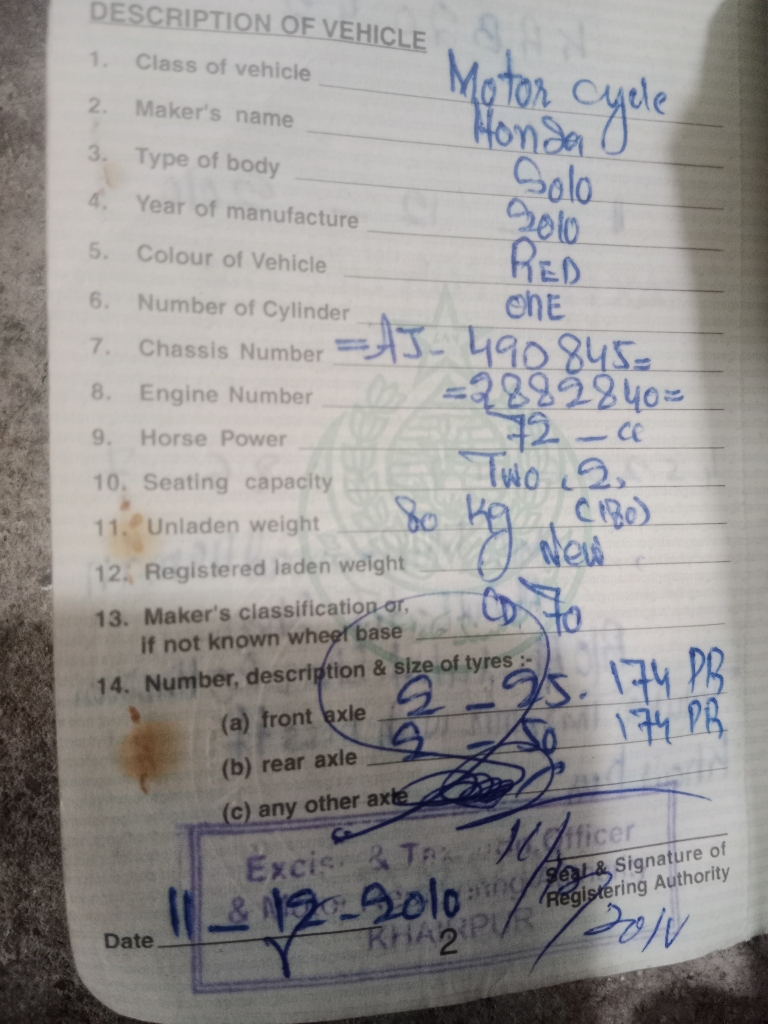 DESCRIPTION OF VEHICLE
1. Class of vehicle Motor cycle
2. Maker's name Honda
3. Type of body Solo
4. Year of manufacture 2010
5. Colour of Vehicle RED
6. Number of Cylinder onE
7. Chassis Number =AJ- 490845=
8. Engine Number =2882840=
9. Horse Power 72 - cc
10. Seating capacity Two (2)
11. Unladen weight 80 Kg (180)
12. Registered laden weight New
13. Maker's classification or,
if not known wheel base CD 70
14. Number, description & size of tyres :-
(a) front axle 2 - 25. 174 PR
(b) rear axle 2 - 50 174 PR
(c) any other axle
Excise & Officer
Seal & Signature of
Registering Authority
KHAIRPUR
Date 11 - 12 - 2010
2